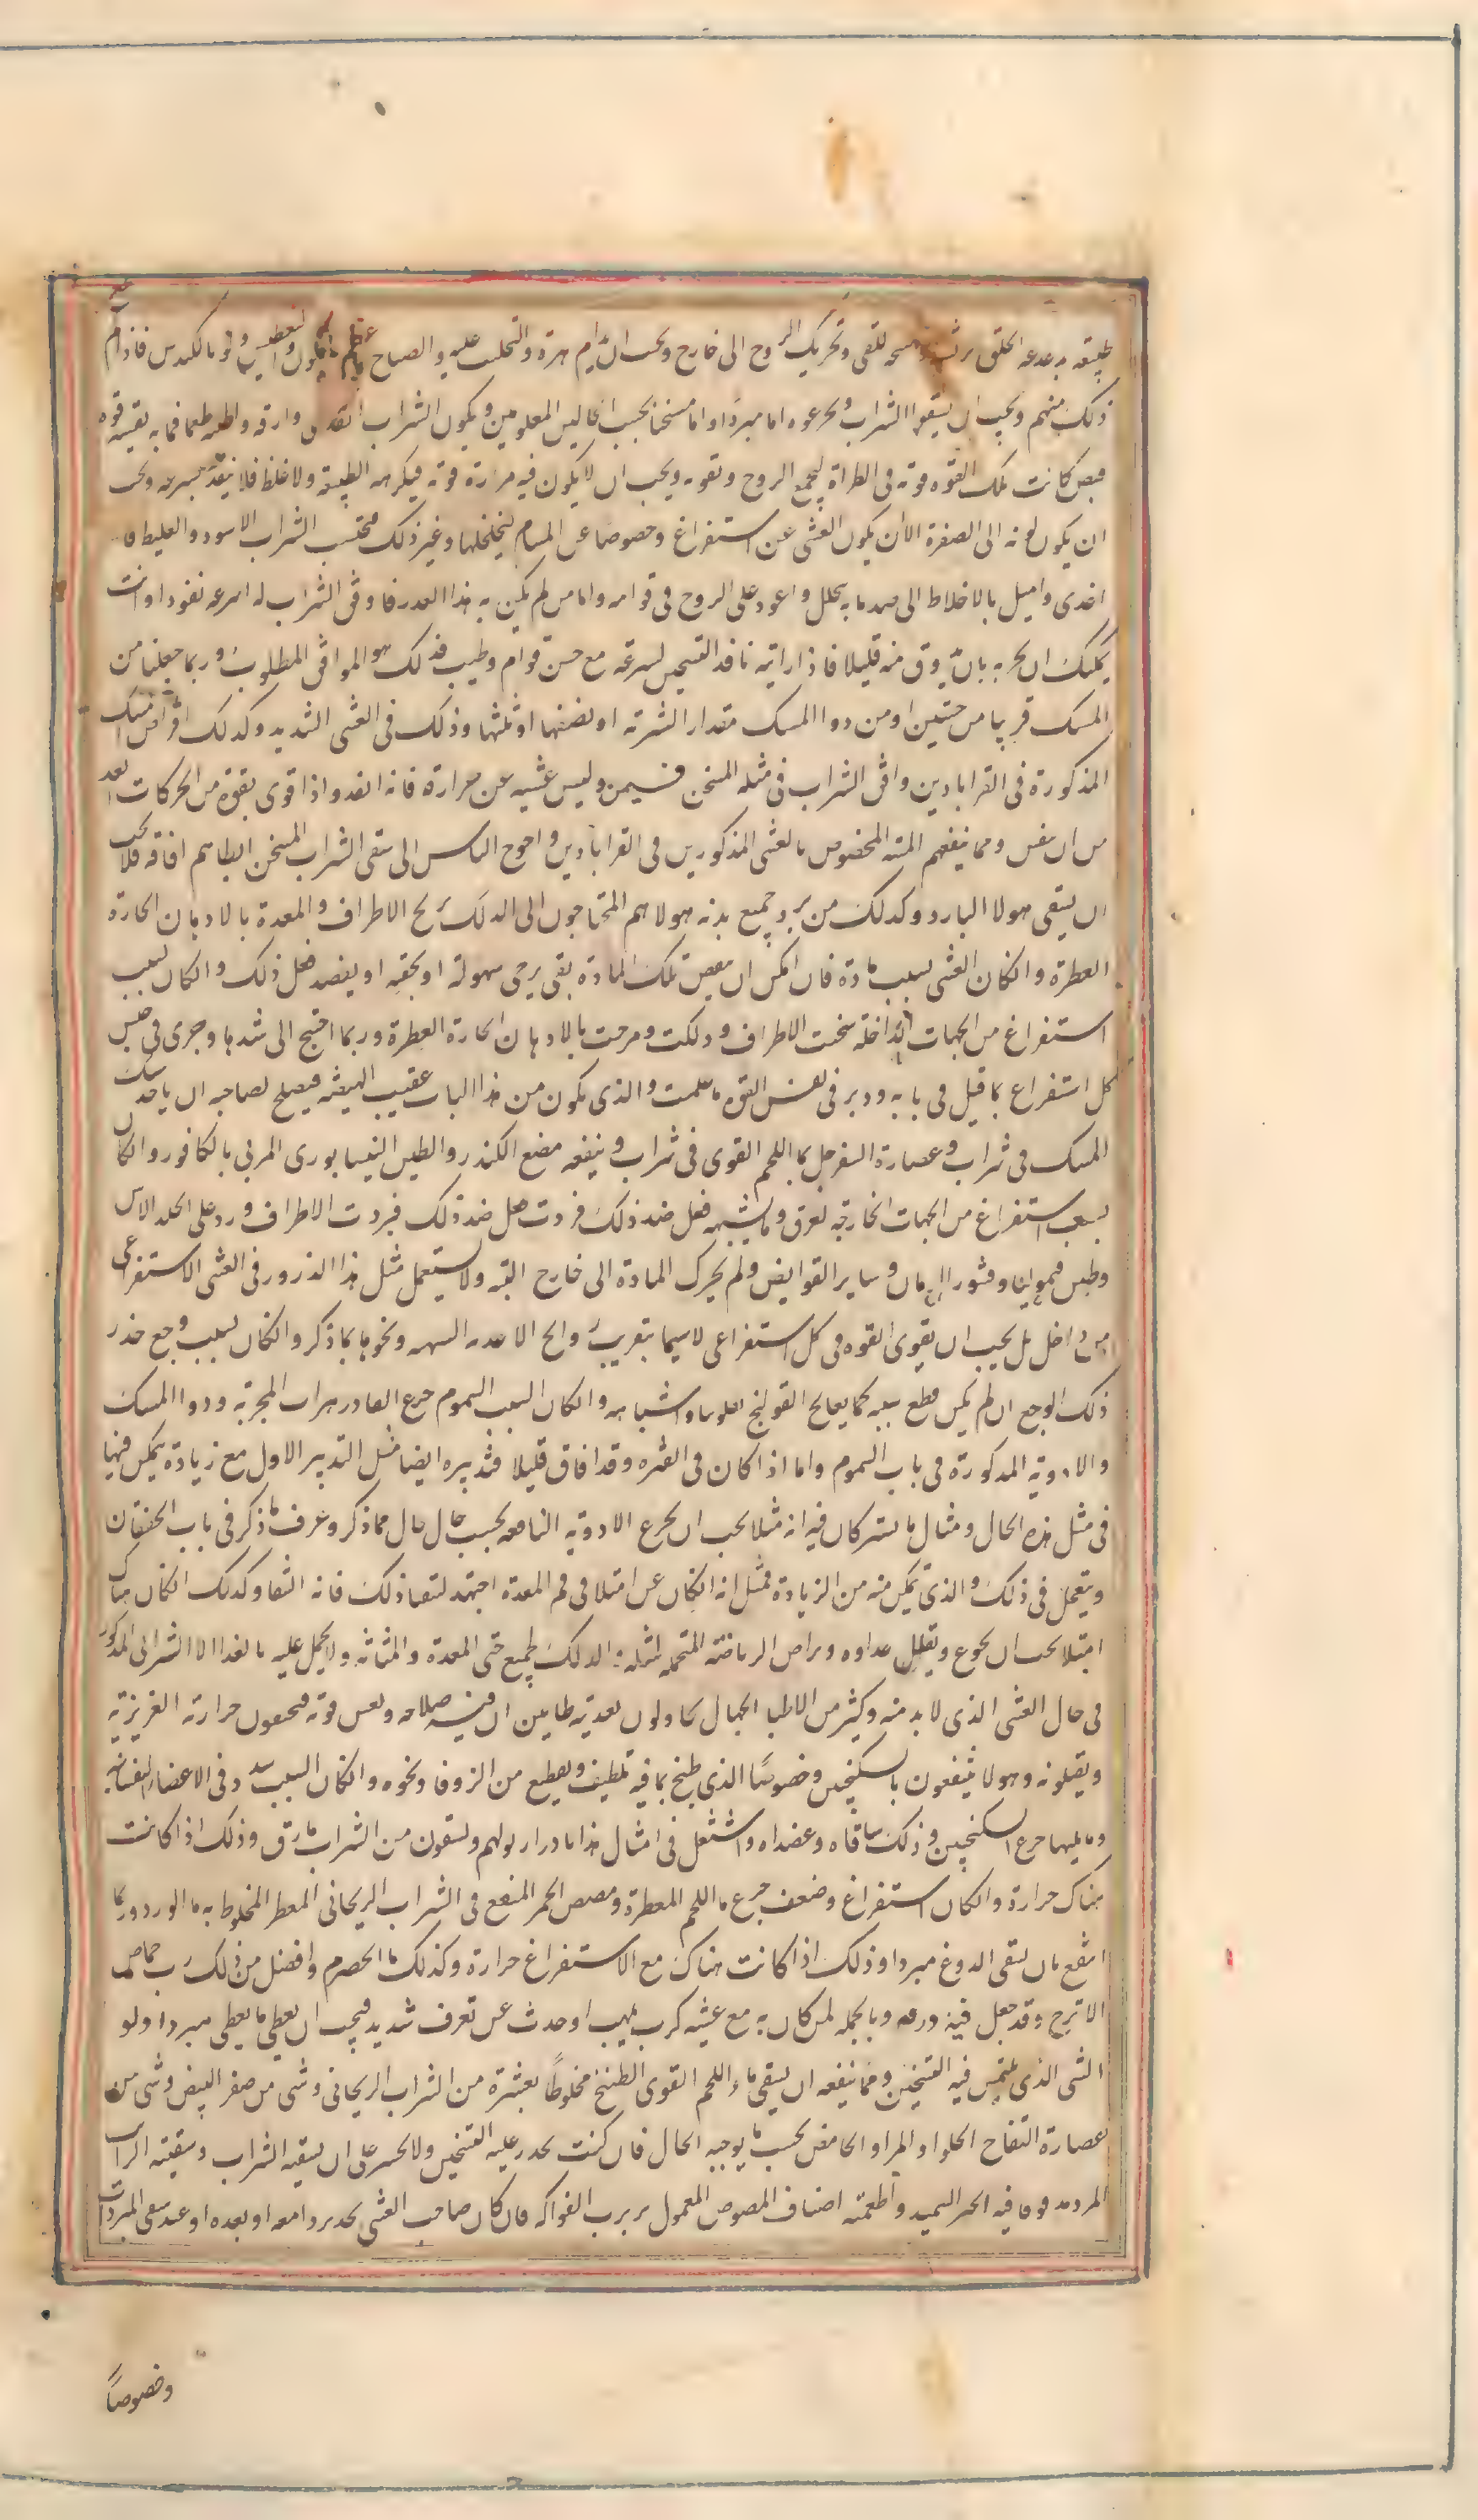 طبيعته بدغدغة الحلق بريشة للقى وتحريك الروح الى خارج ويجب ان يدام هزه والتجلب عليه والصياح
ذلك منهم ويجب ان يسقوا الشراب ويجرعوه اما مبردا واما مسخنا بحسب الحالين المعلومين ويكون الشراب انفذه وارقه واطيبه طعما فما به بقية قوة
قبض كانت تلك القوة قوية فى الطراة ليجمع الروح وتقويه ويجب ان لا يكون فيه مرارة قوية فيكرهه الطبيعة ولا غلظ فلا ينفذ بسرعة ويجب
ان يكون لونه الى الصفرة الا ان يكون الغشى عن استفراغ وخصوصا عن المسام لتخلخلها وغير ذلك فيحتسب الشراب الاسود والغليظ فا
اغذى واميل بالاخلاط الى ضد ما به يتحلل واعود على الروح فى قوامه واما من لم يكن به هذا العذر فاوفق الشراب له اسرعه نفوذا وانت
يمكنك ان تجربه بان تذوق منه قليلا فاذا رايته نافذ التسخين بسرعة مع حسن قوام وطيب فذلك هو الموافق المطلوب وربما جعلنا من
المسك قريبا من حبتين او من دوا المسك مقدار الشربة او نصفها او ثلثها وذلك فى الغشى الشديد وكذلك اقراص المسك
المذكورة فى القراباذين واوفق الشراب فى مثله المسخن فيمن وليس غشيه عن حرارة فانه انفذ واذا قوى بقوة من الحركات
من ان ينفس ومما ينفعهم الميبه المخصوص بالغشى المذكورين فى القراباذين واحوج الناس الى سقى الشراب المسخن ابطاهم افاقة فلا يجب
ان يسقى هولا البارد وكذلك من برد جميع بدنه هولا هم المحتاجون الى الدلك تمريخ الاطراف والمعدة بالادهان الحارة
العطرة وان كان الغشى بسبب مادة فان امكن ان ينقص تلك المادة بقى يرجى سهولة او بحقنة او بفصد فعل ذلك وان كان بسبب
استفراغ من الجهات الداخلة سخنت الاطراف ودلكت ومرخت بالادهان الحارة العطرة وربما احتيج الى شدها وجرى فى حبس
كل استفراغ بما قيل فى بابه ودبر فى نعش القوة ما علمت والذى يكون من هذا الباب عقيب الهيضة فيصلح لصاحبه ان ياخذ سك
المسك فى شراب وعصارة السفرجل بما اللحم القوى فى شراب وينفعه مضغ الكندر والطين النيسابورى المربى بالكافور وان كان
بسبب استفراغ من الجهات الخارجة لعرق وما يشبهه فعل ضد ذلك فبردت الاطراف وذر على الجلد الاس
وطين قيموليا وقشور الرمان وساير القوابض ولم يحرك المادة الى خارج البتة ولا يستعمل مثل هذا الذرور فى الغشى الاستفراغى
من داخل بل يجب ان يقوى القوة فى كل استفراغى لاسيما بتقريب روايح الاغذية الشهية ونحوها بما ذكر وان كان بسبب وجع خدر
ذلك الوجع ان لم يمكن قطع سببه كما يعالج القولنج بفلونيا واشباهه وان كان السبب السموم جرع البادزهرات المجربة ودوا المسك
والادوية المذكورة فى باب السموم واما اذا كان فى الفترة وقد افاق قليلا فتدبيره ايضا مثل التدبير الاول مع زيادة يمكن فيها
فى مثل هذه الحال ومثال ما يشتركان فيه انه مثلا يجب ان يجرع الادوية النافعة بحسب حال حال مما ذكر وعرف ما ذكر فى باب الخفقان
ويستعمل فى ذلك والذى يمكن منه من الزيادة فمثل انه ان كان عن امتلا فى فم المعدة اجتهد لتنقيا ذلك فانه الشفا وكذلك ان كان هناك
امتلا يجب ان يجوع ويقلل غذاوه ويراض الرياضة المحتملة لمثله والدلك لجميع حتى المعدة والمثانة ولا يحمل عليه بالغذا الا الشراب المذكور
فى حال الغشى الذى لابد منه وكثير من الاطبا الجهال يحاولون تغذيته ظانين ان فيه صلاحه ونعش قوته فيخنقون حرارته الغريزية
ويقتلونه وهولا ينتفعون بالسكنجبين وخصوصا الذى طبخ بما فيه تلطيف وتقطيع من الزوفا ونحوه وان كان السبب سدد فى الاعضا النفسانية
وما يليها جرع السكنجبين وذلك ساقاه وعضداه واشتغل فى امثال هذا بادرار بولهم ويسقون من الشراب ما رق وذلك اذا كانت
هناك حرارة وان كان استفراغ وضعف جرع ما اللحم المعطرة ومصص الخمر المنقع فى الشراب الريحانى المعطر المخلوط به ما الورد وربما
انتفع بان يسقى الدوغ مبردا وذلك اذا كانت هناك مع الاستفراغ حرارة وكذلك ما الحصرم وافضل من ذلك رب حماض
الاترج وقد جعل فيه ورقه وبالجملة لمن كان به مع غشيه كرب ملهب او حدث عن تعرف شديد فيجب ان يعطى ما يعطى مبردا ولو
الشى الذى يلتمس فيه التسخين ومما ينفعه ان يسقى ماء اللحم القوى الطبخ مخلوطًا بعشرة من الشراب الريحانى وشى من صفر البيض وشى من
عصارة التفاح الحلو او المر او الحامض بحسب ما يوجبه الحال فان كنت تحذر عليه التسخين ولا تجسر على ان تسقيه الشراب وسقيته الرايب
المرد مدوفا فيه الخبز السميد واطعمته اصناف المصوص المعمول بربوب الفواكه فان كان صاحب الغشى يجد بردا معه او بعده او عند سقى المبردات
وخصوصًا